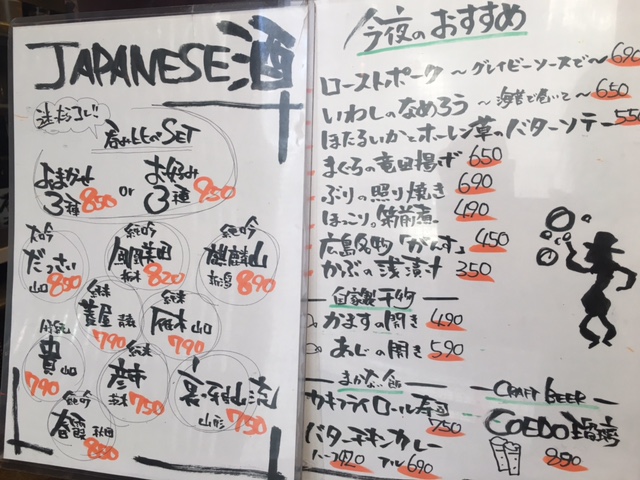 JAPANESE酒
迷ったらコレ!!
呑み比べSET
おまかせ
3種 850
or
お好み
3種 950
大吟
だっさい
山口 890
純吟
鳳凰美田
栃木 820
純吟
麒麟山
890
純米
790
純米
山口
790
貴
山口
790
純米
栃木 750
山形 750
純吟
春霞
秋田
850
今夜のおすすめ
ローストポーク ~グレイビーソースで~ 690
いわしのなめろう ~海苔で巻いて~ 650
ほたるいかとホーレン草のバターソテー 550
まぐろの竜田揚げ 650
ぶりの照り焼き 690
ほっこり。筑前煮。 490
広島名物「がんす」 450
かぶの浅漬け 350
自家製干物
かますの開き 490
あじの開き 590
まかない飯
カキフライロール寿司 750
バターチキンカレー
ハーフ420 フル690
CRAFT BEER
COEDO 瑠璃
890